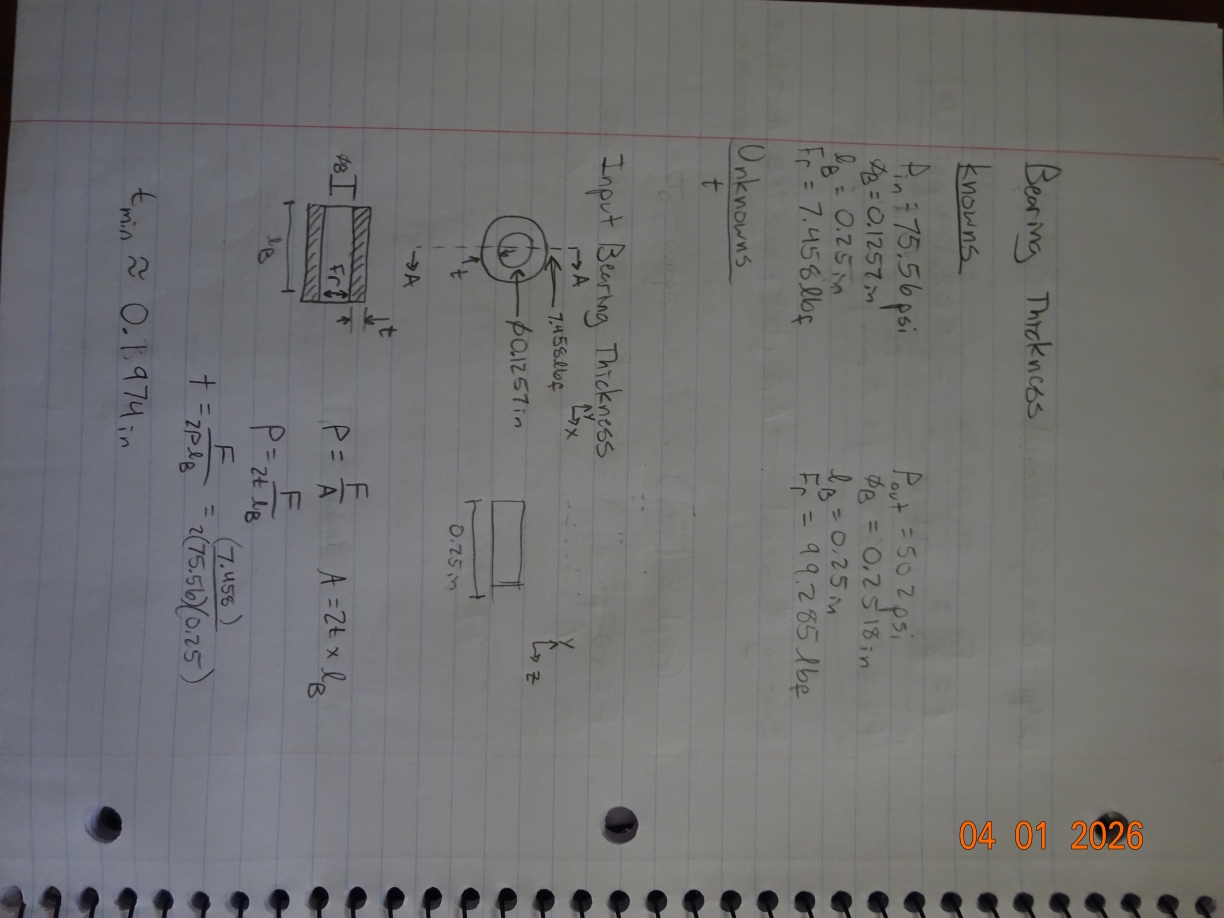 Bearing Thickness
Knowns
Pin = 75.56 psi
ϕB = 0.1257 in
lB = 0.25 in
Fr = 7.458 lbf
Pout = 502 psi
ϕB = 0.2518 in
lB = 0.25 in
Fr = 99.285 lbf
Unknowns
t
Input Bearing Thickness
A
7.458 lbf
ϕ0.1257 in
t
A
Y
X
0.25 in
Y
Z
ϕB
lB
Fr
t
P = F/A A = 2t x lB
P = F/2t lB
t = F/2PlB = (7.458)/2(75.56)(0.25)
tmin ≈ 0.1974 in
04 01 2026